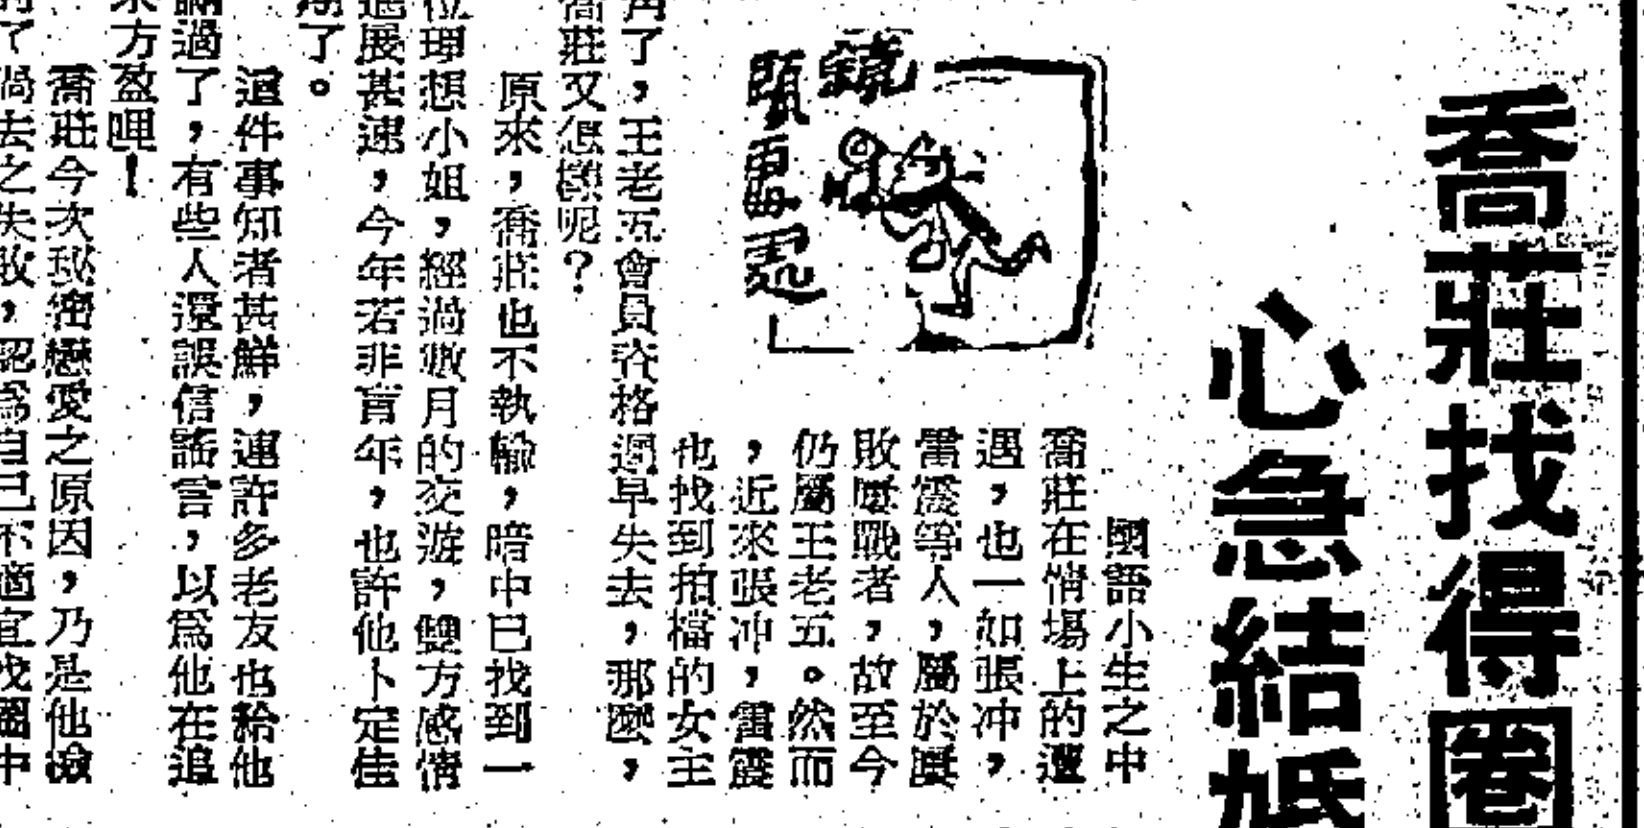 喬莊找得圈
心急結婚
國語小生之中
喬莊在情場上的遭
遇，也一如張冲，
雷震等人，屬於屢
敗屢戰者，故至今
仍屬王老五。然而
，近來張冲，雷震
也找到拍檔的女主
角了，王老五會員資格遲早失去，那麼，
喬莊又怎樣呢？
原來，喬莊也不執輸，暗中已找到一
位理想小姐，經過數月的交游，雙方感情
進展甚速，今年若非盲年，也許他卜定佳
期了。
這件事知者甚鮮，連許多老友也給他
瞞過了，有些人還誤信謠言，以爲他在追
來方盈哩！
喬莊今次秘密戀愛之原因，乃是他檢
討了過去之失敗，認爲自己不適宜找圈中